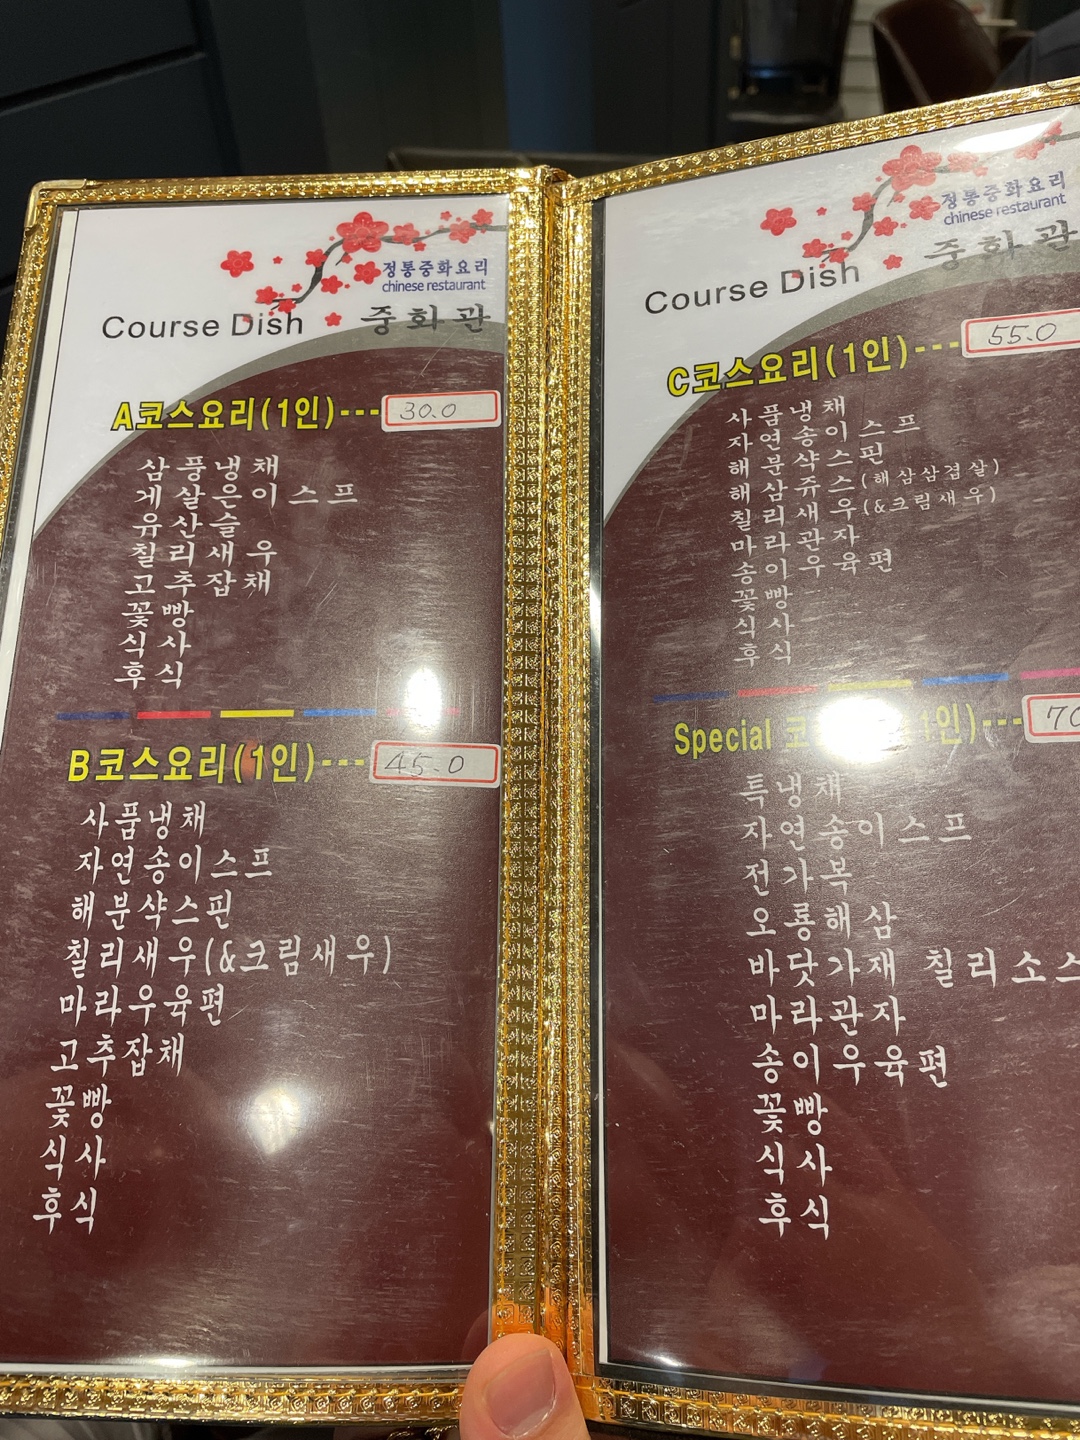 정통중화요리
chinese restaurant
Course Dish 중화관
A코스요리(1인)--- 30.0
삼품냉채
게살은이스프
유산슬
칠리새우
고추잡채
꽃빵
식사
후식
B코스요리(1인)--- 45.0
사품냉채
자연송이스프
해분샥스핀
칠리새우(&크림새우)
마라우육편
고추잡채
꽃빵
식사
후식
정통중화요리
chinese restaurant
Course Dish 중화관
C코스요리(1인)--- 55.0
사품냉채
자연송이스프
해분샥스핀
해삼쥬스(해삼삼겹살)
칠리새우(&크림새우)
마라관자
송이우육편
꽃빵
식사
후식
Special 코 1인)--- 70
특냉채
자연송이스프
전가복
오룡해삼
바닷가재 칠리소스
마라관자
송이우육편
꽃빵
식사
후식